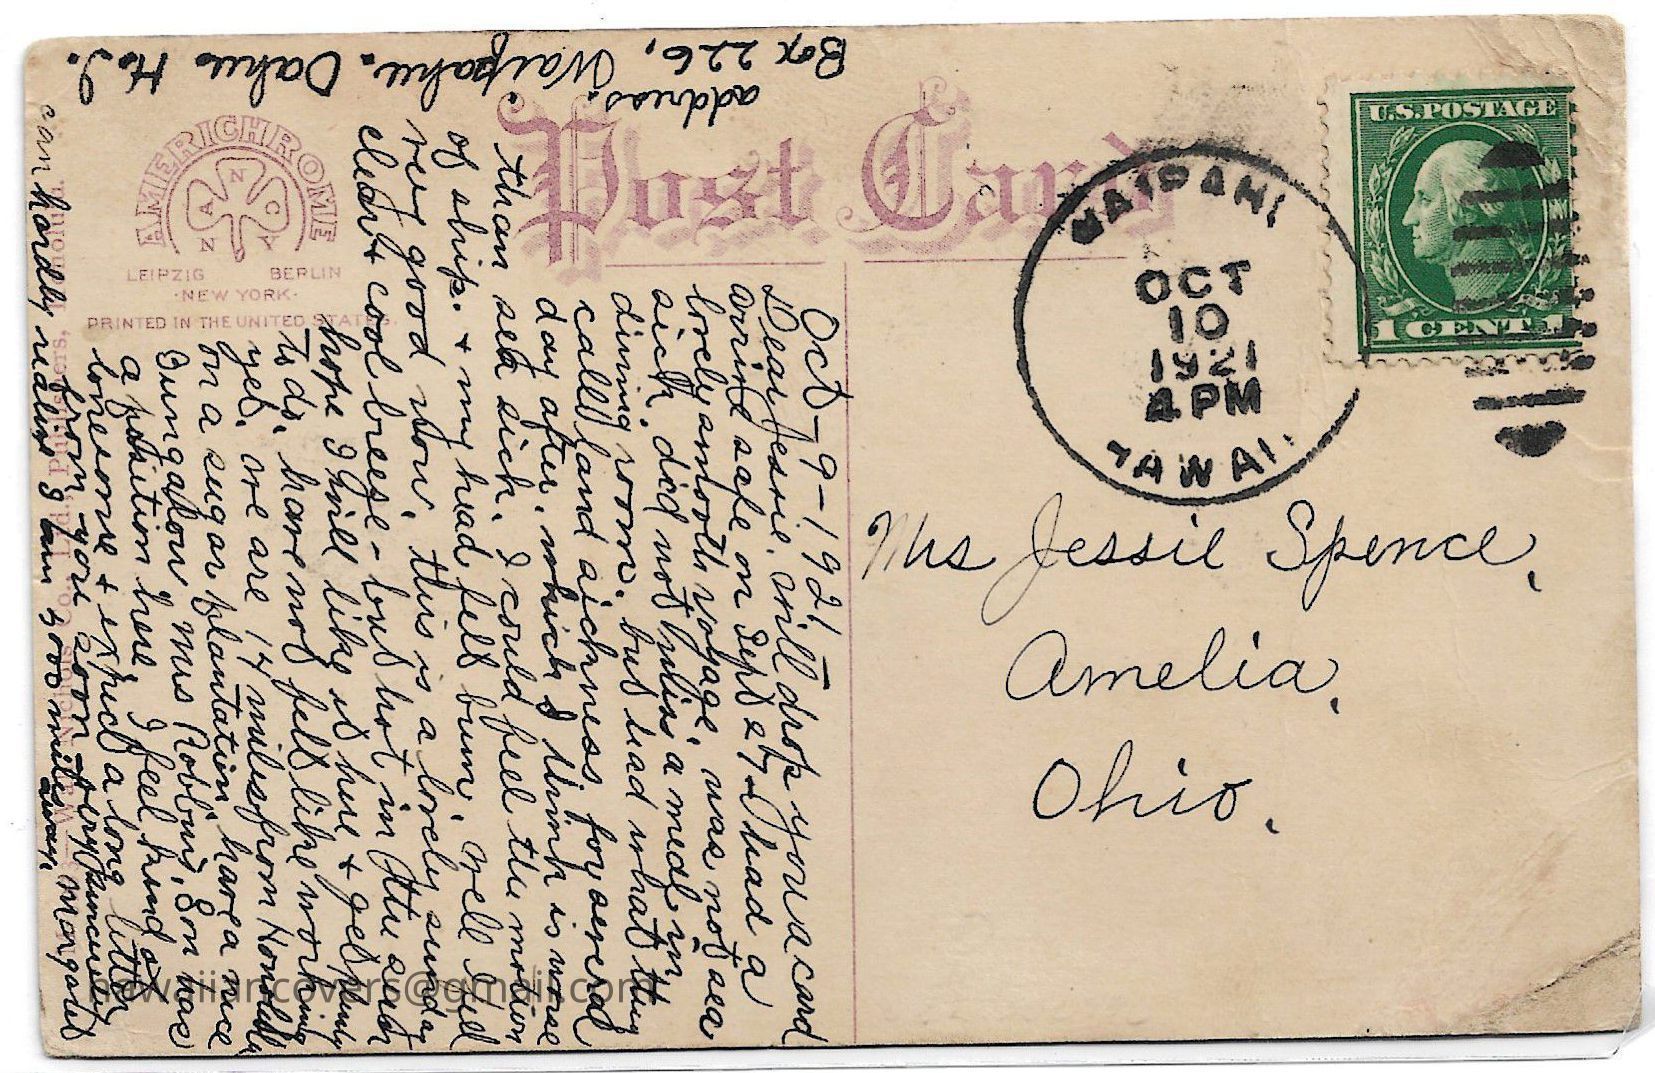 Post Card
AMERICHROME
A N C N Y
LEIPZIG BERLIN
NEW YORK
PRINTED IN THE UNITED STATES.
U.S. POSTAGE
1 CENT 1
WAIPAHU
OCT
10
1921
4 PM
HAWAII.
Mrs Jessie Spence,
Amelia,
Ohio.
address.
Box 226, Waipahu. Oahu H.I.
Oct-9-1921-
Dear Jessie. will drop you a card
arrive safe on Sept 27 & had a
lovely smooth voyage, was not sea
sick, did not miss a meal in
dinning room. but had what they
call land sickness for several
day after, which I think is worse
than sea sick. I could feel the motion
of ship. & my head felt bum, well I feel
very good now. this is a lovely sunday
clear & cool breese - but hot in the sun
hope I will like it here & get plenty
to do, have not felt like working
yet. we are 17 miles from Honolulu
on a sugar plantation, have a nice
Bungalow Mrs Robbins, Son has
a position here I feel kind of
lonesome & expect a long letter
from you soon Very sincerely
Margaret
can hardly realize I am 5000 miles
away.
Nichols Co., Ltd., Publishers, Honolulu.
hawaiiancovers@gmail.com